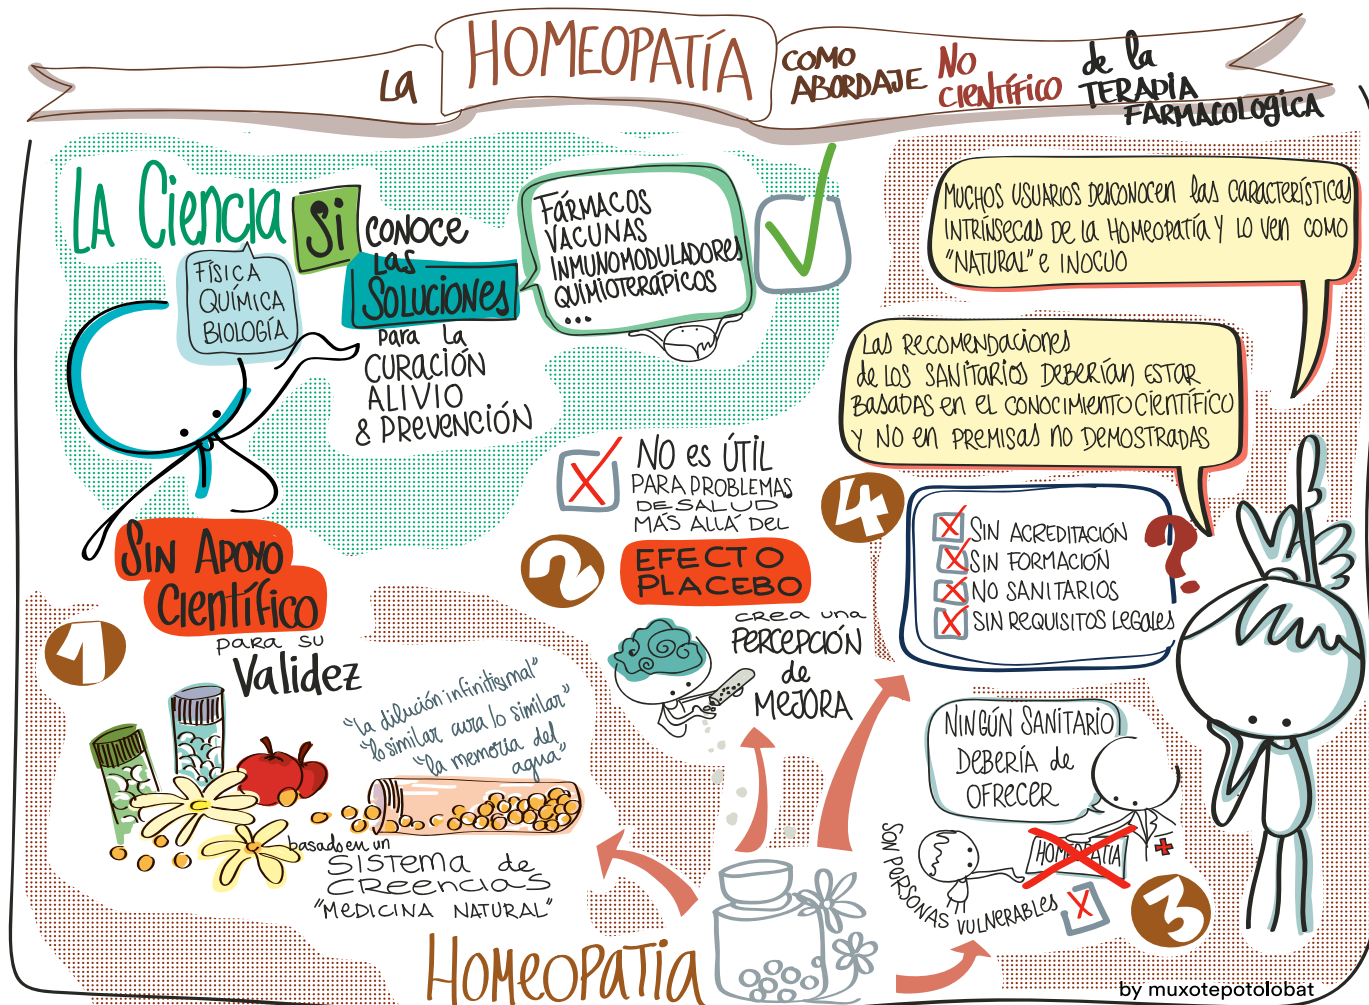 LA
HOMEOPATÍA
COMO
ABORDAJE
NO
CIENTÍFICO
de la
TERAPIA
FARMACOLOGICA
LA Ciencia
Si
CONOCE
LAS
SOLUCIONES
para la
CURACIÓN
ALIVIO
& PREVENCIÓN
FÍSICA
QUÍMICA
BIOLOGÍA
FÁRMACOS
VACUNAS
INMUNOMODULADORES
QUIMIOTERÁPICOS
...
MUCHOS USUARIOS DESCONOCEN las CARACTERÍSTICAS
INTRÍNSECAS DE LA HOMEOPATÍA Y LO VEN COMO
"NATURAL" e INOCUO
LAS RECOMENDACIONES
de LOS SANITARIOS DEBERÍAN ESTAR
BASADAS EN EL CONOCIMIENTO CIENTÍFICO
Y NO EN PREMISAS NO DEMOSTRADAS
1
SIN APOYO
Científico
para su
Validez
"la dilución infinitisimal"
"lo similar cura lo similar"
"la memoria del
agua"
basado en un
SISTEMA de
CREENCIAS
"MEDICINA NATURAL"
2
NO es ÚTIL
PARA PROBLEMAS
DE SALUD
MÁS ALLÁ DEL
EFECTO
PLACEBO
crea una
PERCEPCIÓN
de
MEJORA
4
SIN ACREDITACIÓN
SIN FORMACIÓN
NO SANITARIOS
SIN REQUISITOS LEGALES
?
NINGÚN SANITARIO
DEBERÍA de
OFRECER
HOMEOPATIA
SON PERSONAS VULNERABLES
3
HOMEOPATIA
by muxotepotolobat